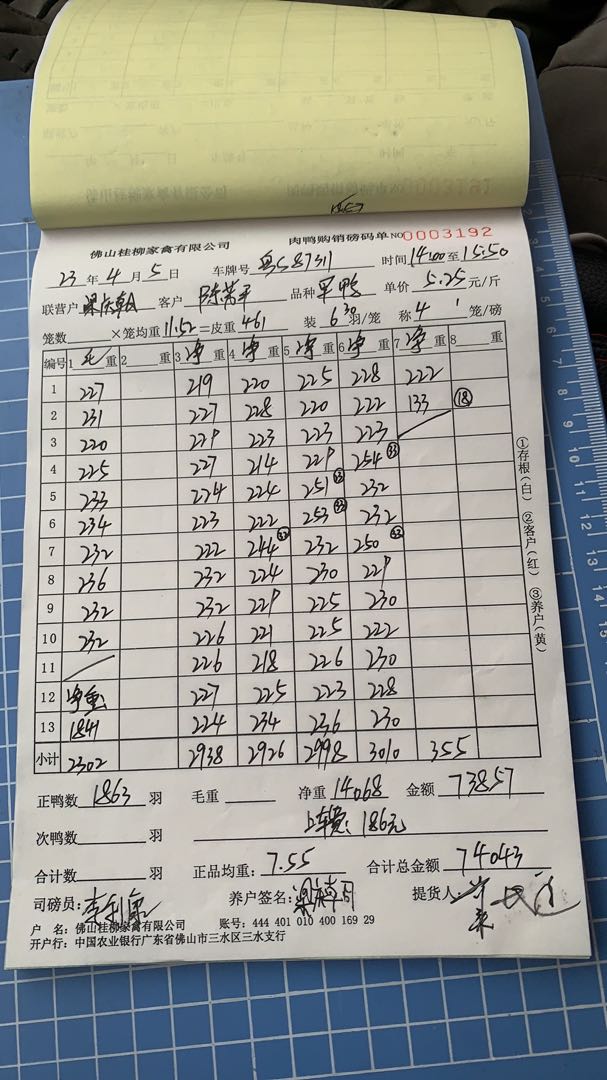 佛山桂柳家禽有限公司 肉鸭购销磅码单 NO0003192
23年4月5日 车牌号 粤S87311 时间14:00至15:50
联营户 客户 陈 品种 军鸭 单价 5.25元/斤
笼数 ×笼均重11.52=皮重461 装 6 30 羽/笼 称 4 笼/磅
编号 1 毛重 2 重 3 净重 4 净重 5 净重 6 净重 7 净重 8 重
1 227 219 220 225 228 222
2 231 227 228 220 222 133 ⑱
3 220 229 223 223 223
4 225 227 214 229 254 ㉝
5 233 224 224 251 ㉝ 232
6 234 223 222 253 ㉝ 232
7 232 222 244 232 250 ㉝
8 236 232 224 230 229
9 232 232 229 225 230
10 232 226 221 225 222
11 226 218 226 230
12 净重 227 225 223 228
13 1841 224 234 236 230
小计 2302 2938 2926 2998 3010 355
正鸭数 1863 羽 毛重 净重 14068 金额 73857
次鸭数 羽 上车费:186元
合计数 羽 正品均重:7.55 合计总金额 74043
司磅员:李利 养户签名: 提货人:
户 名:佛山桂柳家禽有限公司 账号:444 401 010 400 169 29
开户行:中国农业银行广东省佛山市三水区三水支行
①存根(白) ②客户(红) ③养户(黄)